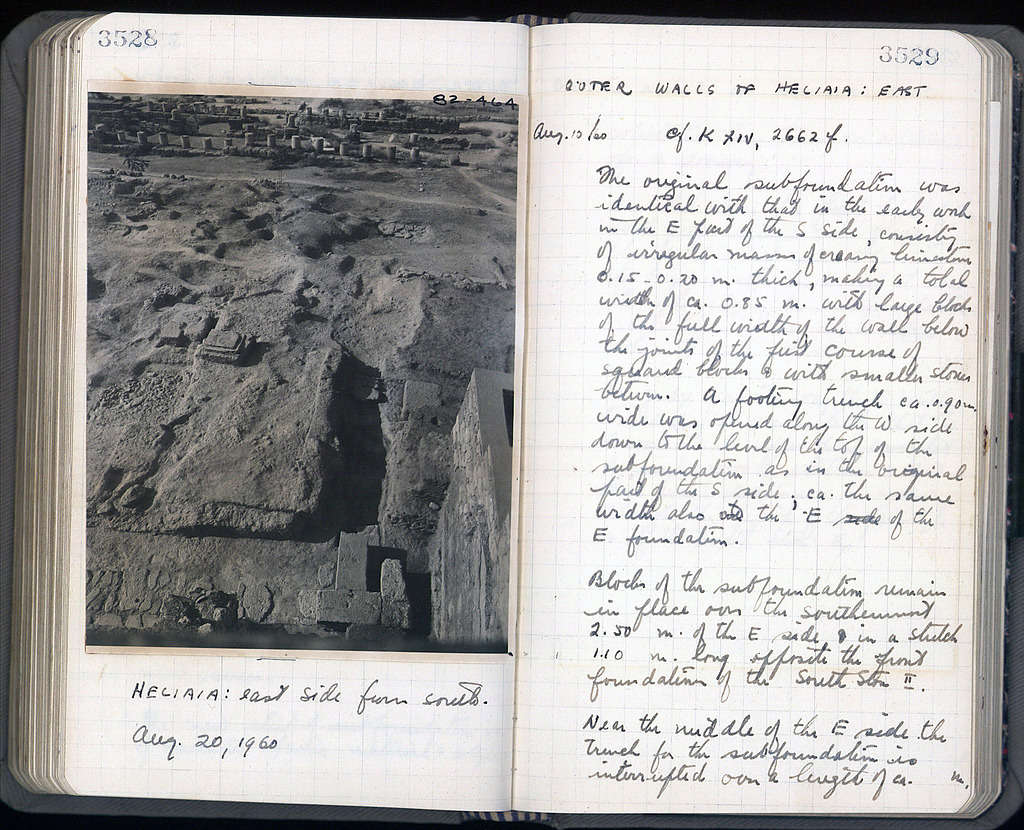 3528
82-464
HELIAIA: east side from south.
Aug. 20, 1960
3529
OUTER WALLS OF HELIAIA: EAST
Aug. 10/60 cf. K XIV, 2662 f.
The original subfoundation was
identical with that in the early work
in the E part of the S side, consisting
of irregular masses of creamy limestone
0.15-0.20 m. thick, making a total
width of ca. 0.85 m. with large blocks
of the full width of the wall below
the joints of the first course of
squared blocks & with smaller stones
between. A footing trench ca. 0.90 m.
wide was opened along the W side
down to the level of the top of the
subfoundation as in the original
part of the S side; ca. the same
width also the E side of the
E foundation.
Blocks of the subfoundation remain
in place over the southernmost
2.50 m. of the E side & in a stretch
1.10 m. long opposite the front
foundation of the South Stoa II.
Near the middle of the E side the
trench for the subfoundation is
interrupted over a length of ca. m.